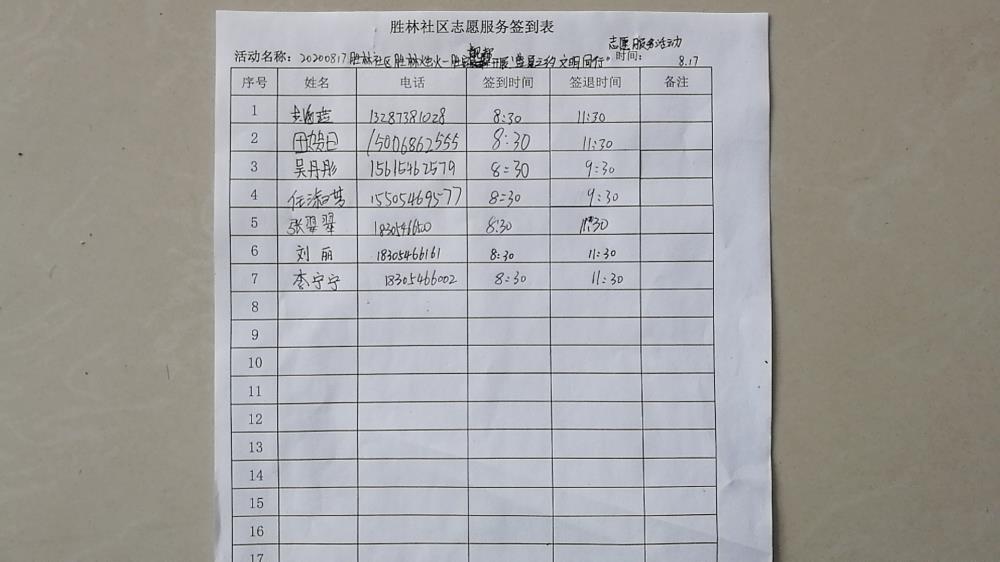 胜林社区志愿服务签到表
志愿服务活动
活动名称： 20200817胜林社区胜林烛火一胜 开展"盛夏之约 文明同行" 时间： 8.17
序号 姓名 电话 签到时间 签退时间 备注
1 13287381028 8:30 11:30
2 15006862555 8:30 11:30
3 吴丹彤 15615462579 8:30 9:30
4 任淑梦 15505469577 8:30 9:30
5 张翠翠 8:30 11:30
6 刘丽 18305466161 8:30 11:30
7 李宁宁 18305466002 8:30 11:30
8
9
10
11
12
13
14
15
16
17